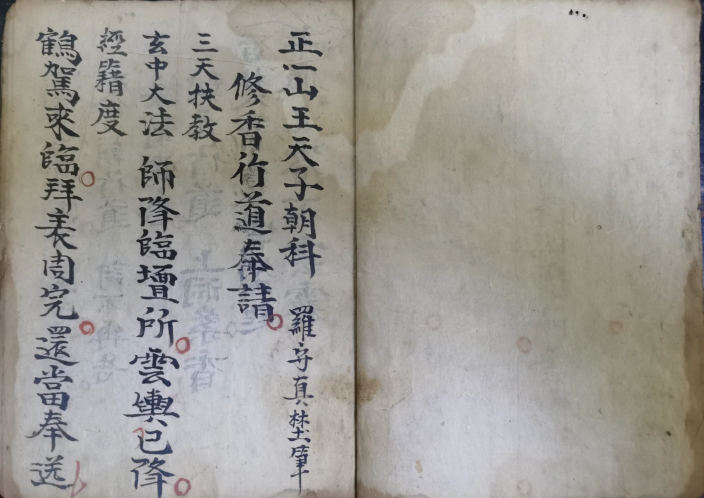 正一山王天子朝科
羅守真
修香行道奉請
三天扶教
玄中大法
經籍度
師降臨壇所雲輿已降
鶴駕來臨拜表周完還當奉送